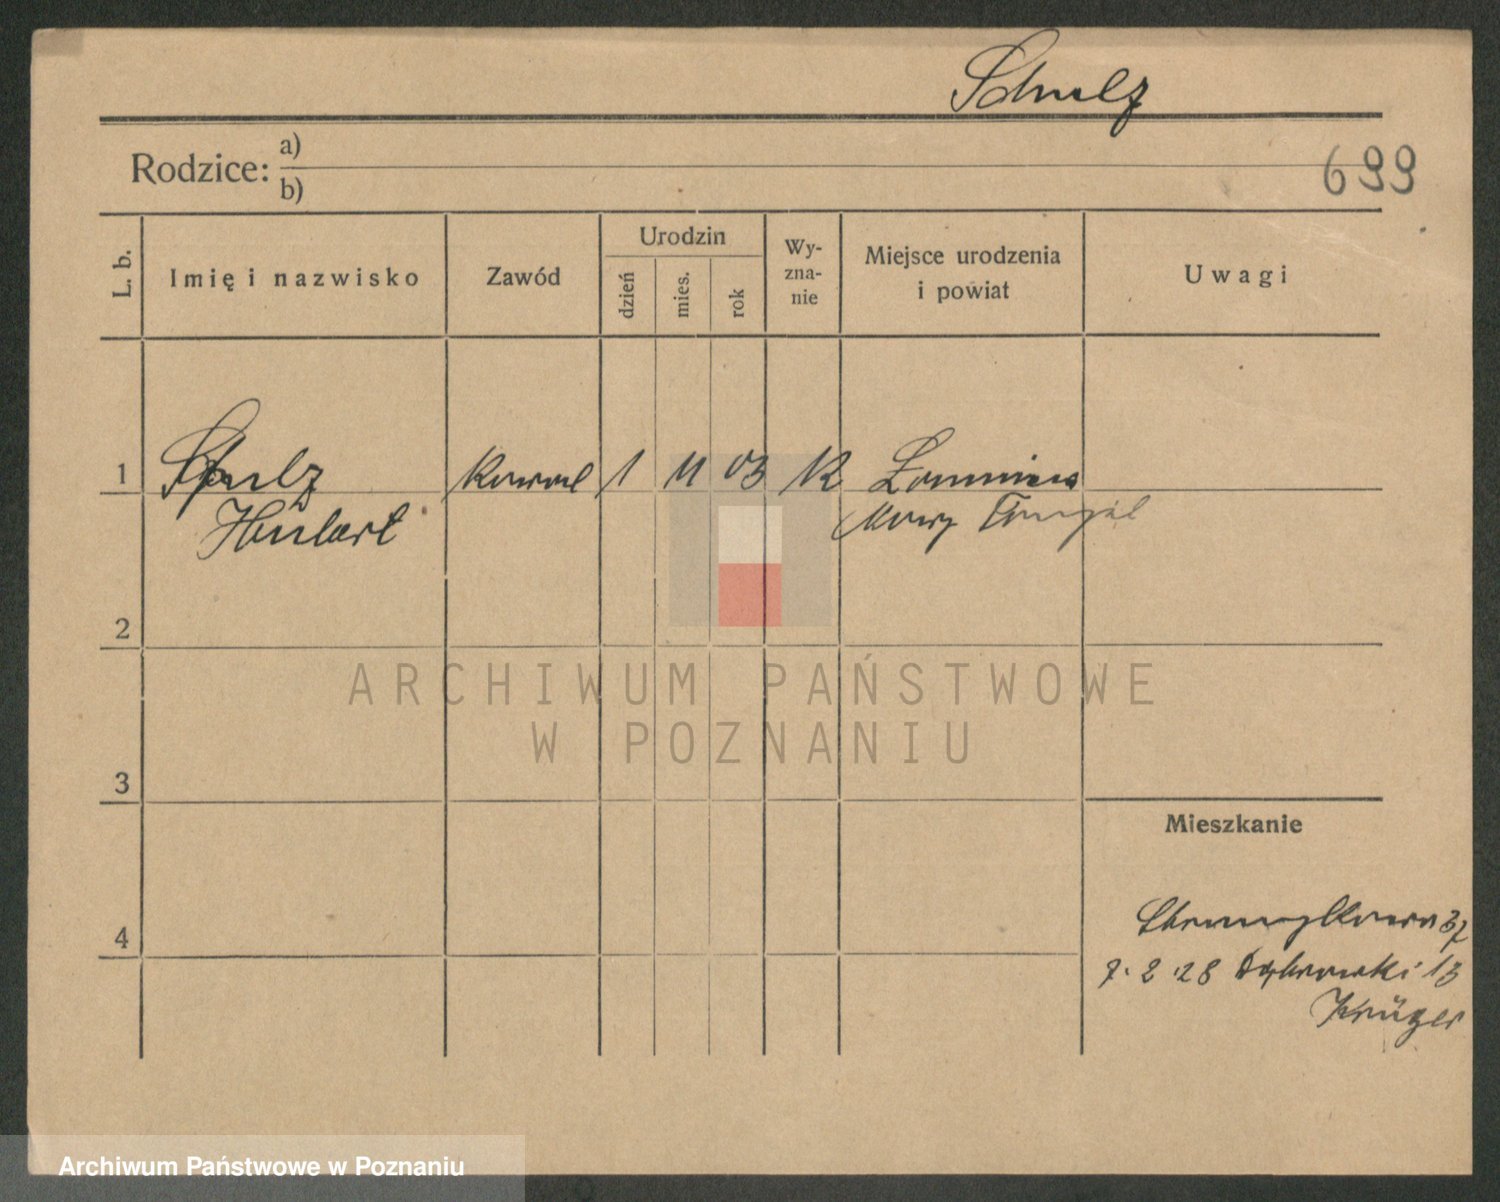 Schulz
Rodzice: a)
b)
699
L. b.
Imię i nazwisko
Zawód
Urodzin
dzień
mies.
rok
Wy-
zna-
nie
Miejsce urodzenia
i powiat
Uwagi
1
Schulz
kowal
1
11
03
K
Hubert
Nowy Tomyśl
2
ARCHIWUM PAŃSTWOWE
W POZNANIU
3
Mieszkanie
4
37
7.2.28 Dąbrowski 13
Krüger
Archiwum Państwowe w Poznaniu